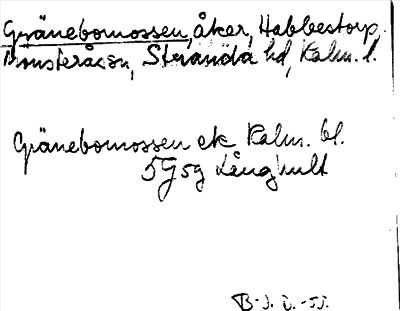 Gränebomossen, åker, Habbestorp,
Mönsterås sn, Stranda hd, Kalm. l.
Gränebomossen ek Kalm. bl.
5G5g Långhult